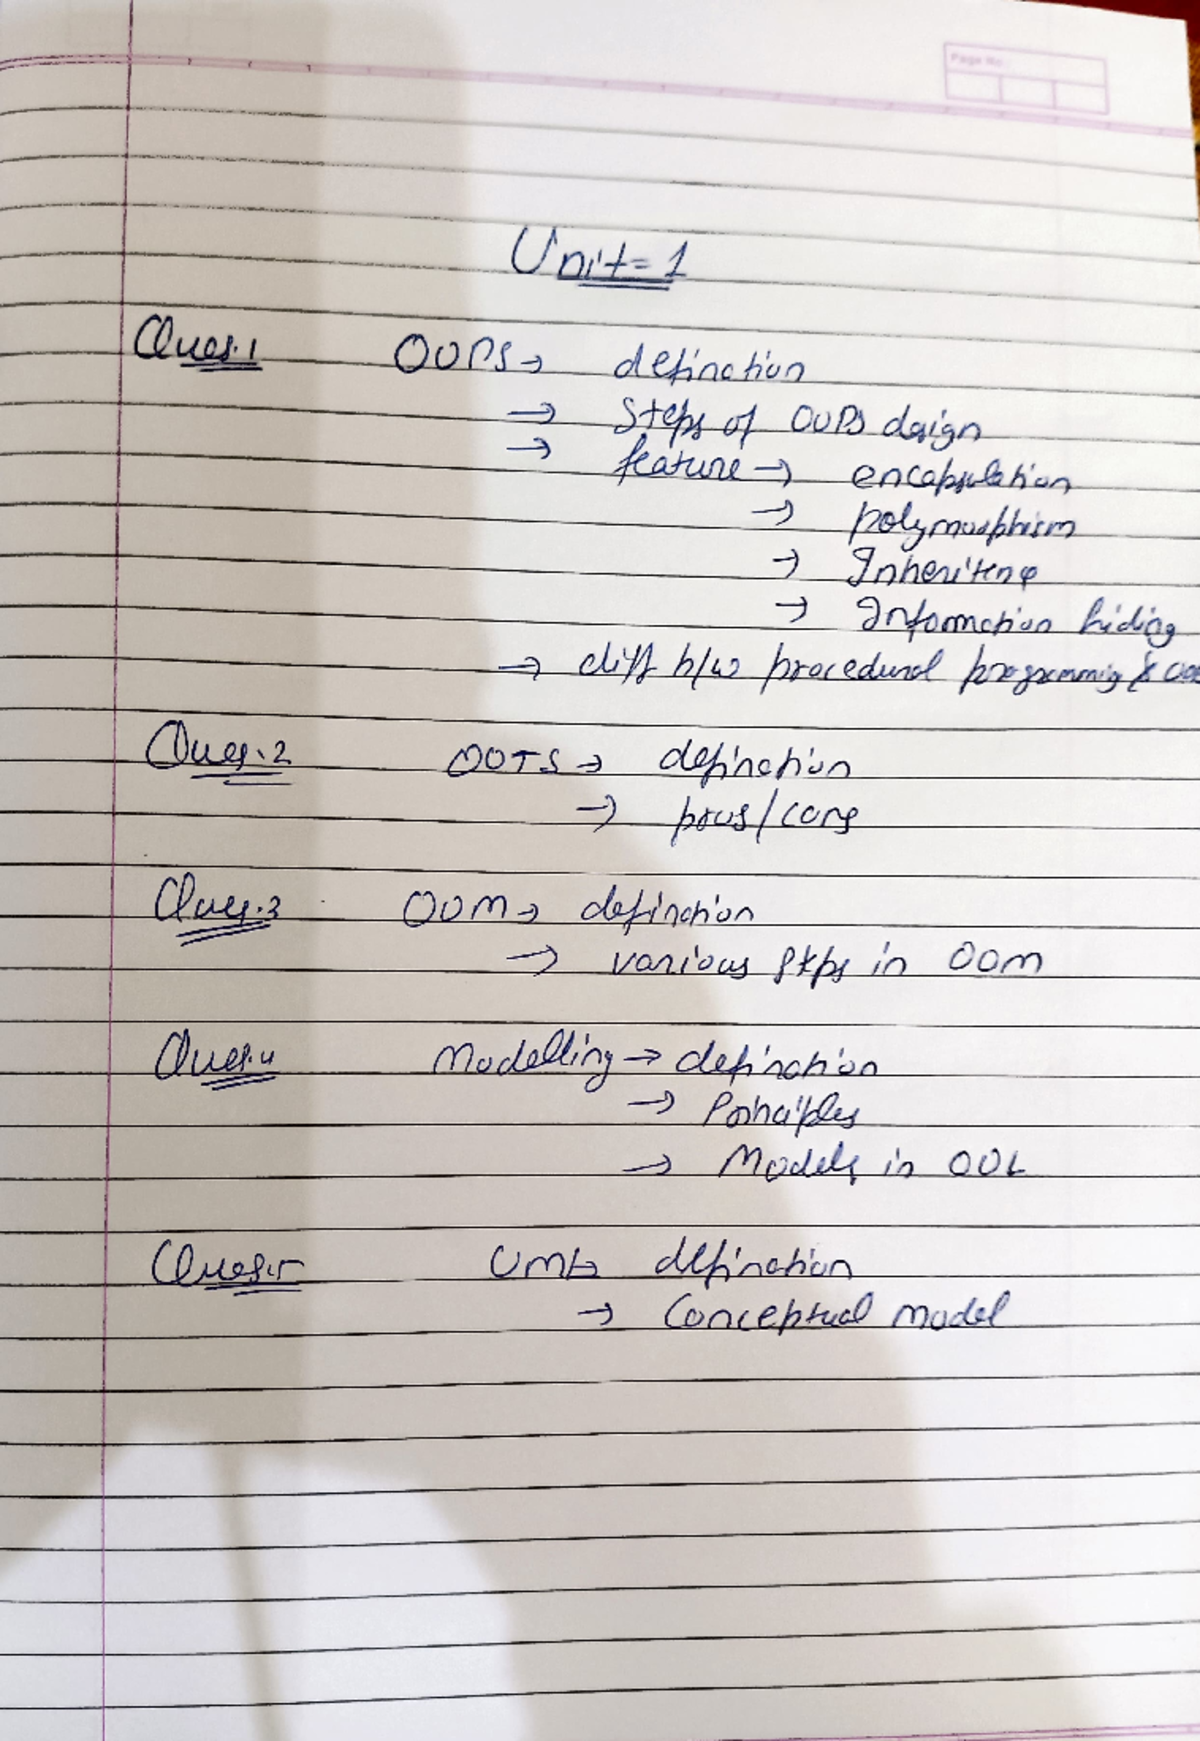 Page No.
Unit=1
Ques.1 OOPS→ defination
→ Steps of OOPS design
→ feature → encapsulation
→ polymorphism
→ Inheritence
→ Information hiding
→ diff b/w procedural programming &
Ques.2 OOTS → defination
→ pros/cons
Ques.3 OOM→ defination
→ various steps in OOM
Ques.4 Modelling → defination
→ Principles
→ Models in OOL
Ques.5 UML→ defination
→ Conceptual model